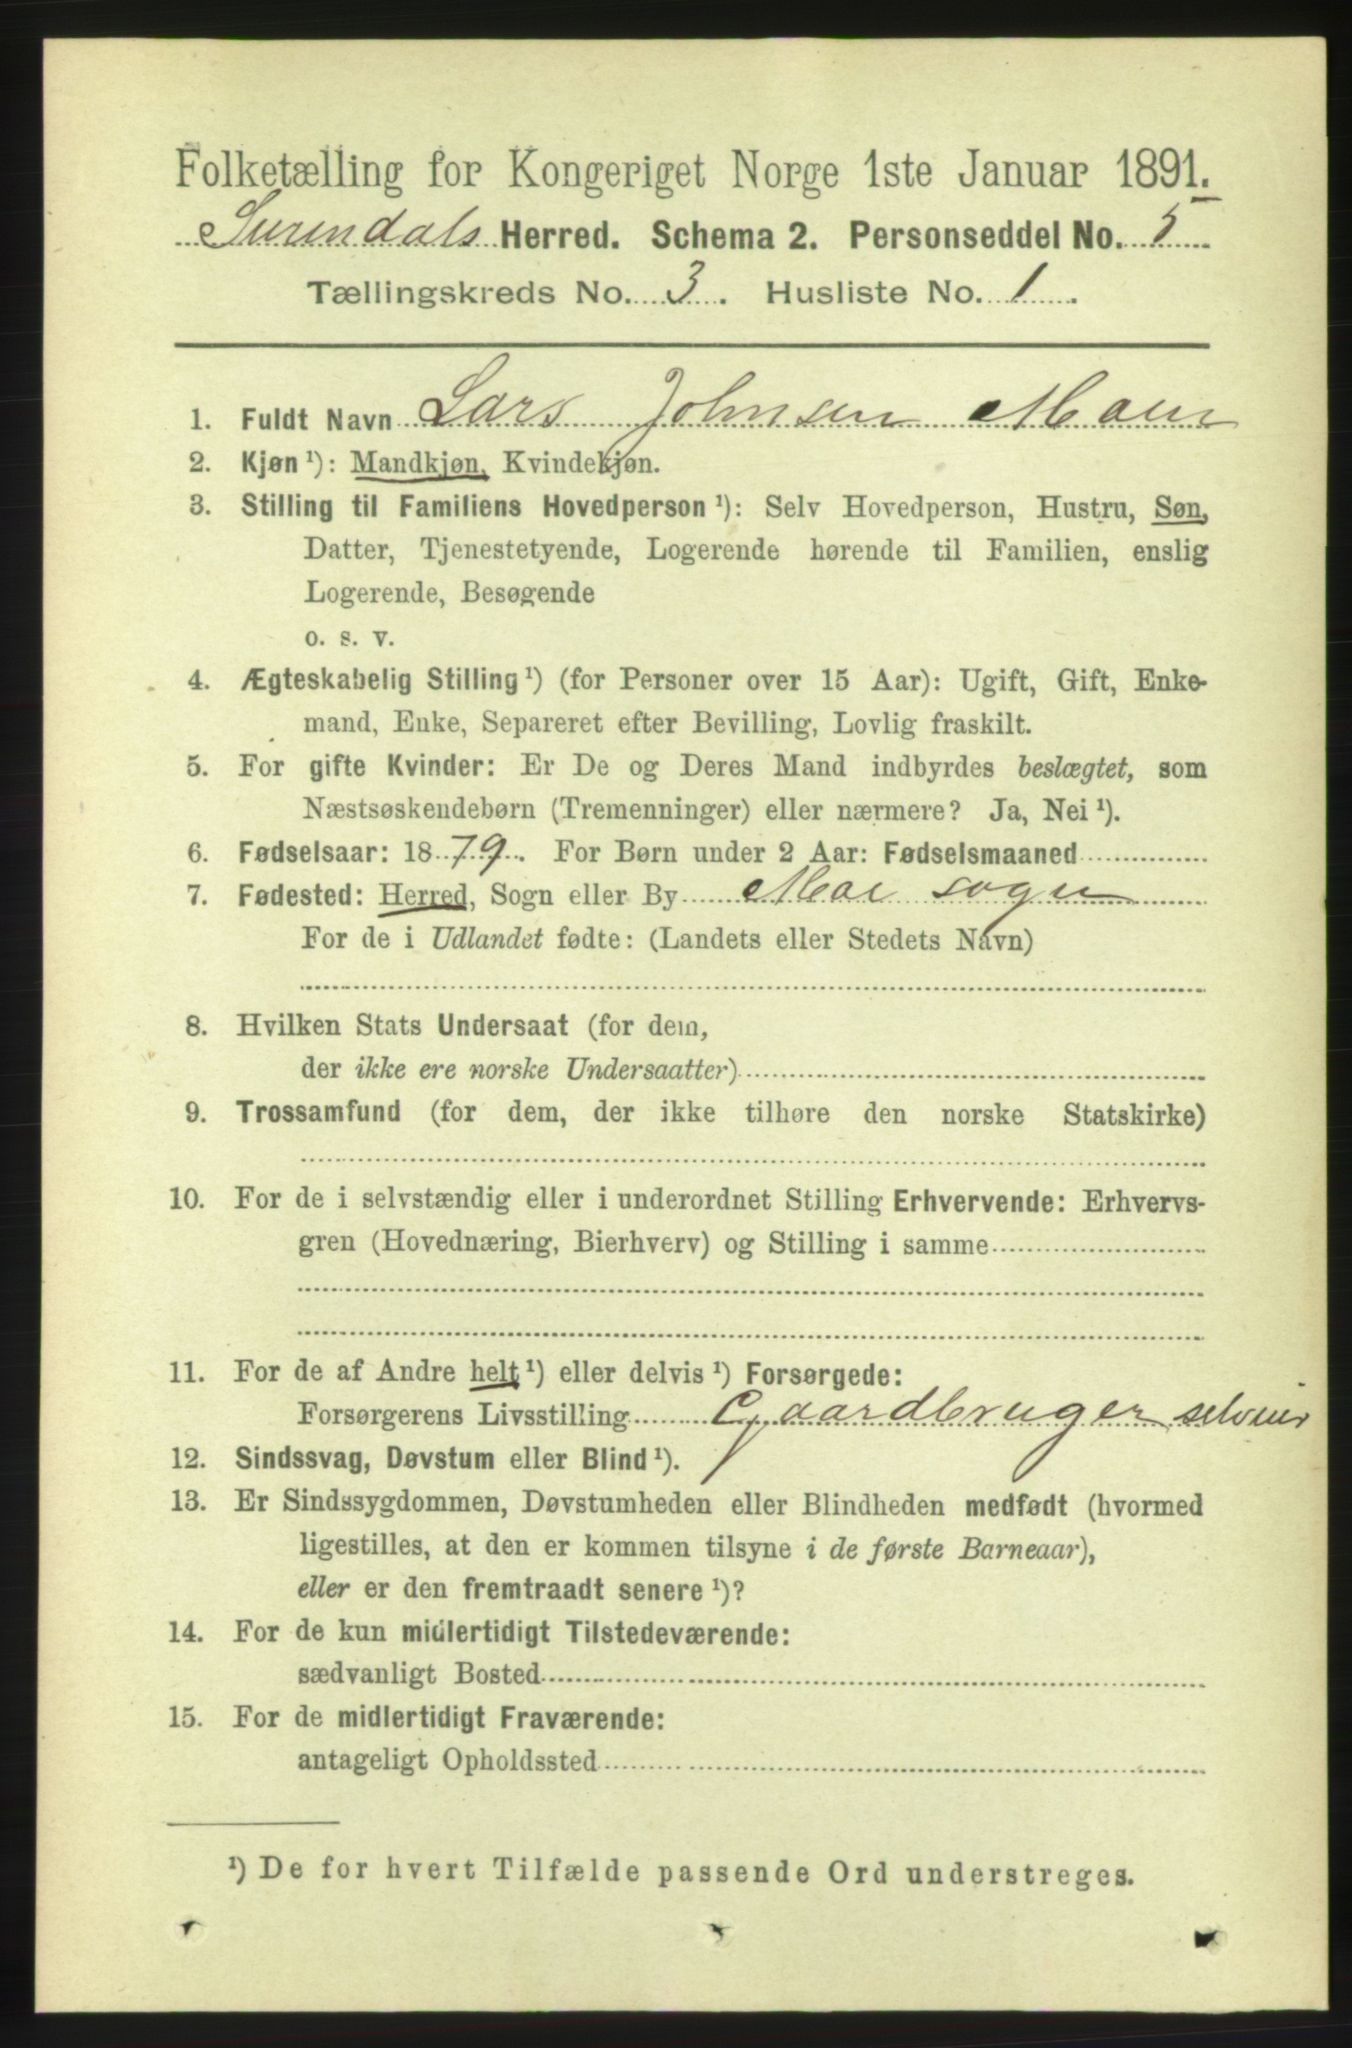 Folketælling for Kongeriget Norge 1ste Januar 1891.
Surendals Herred. Schema 2. Personseddel No. 5
Tællingskreds No. 3. Husliste No. 1.
1. Fuldt Navn Lars Johnsen Moen
2. Kjøn ¹): Mandkjøn, Kvindekjøn.
3. Stilling til Familiens Hovedperson ¹): Selv Hovedperson, Hustru, Søn,
Datter, Tjenestetyende, Logerende hørende til Familien, enslig
Logerende, Besøgende
o. s. v.
4. Ægteskabelig Stilling ¹) (for Personer over 15 Aar): Ugift, Gift, Enke-
mand, Enke, Separeret efter Bevilling, Lovlig fraskilt.
5. For gifte Kvinder: Er De og Deres Mand indbyrdes beslægtet, som
Næstsøskendebørn (Tremenninger) eller nærmere? Ja, Nei ¹).
6. Fødselsaar: 1879. For Børn under 2 Aar: Fødselsmaaned
7. Fødested: Herred, Sogn eller By Moe sogn
For de i Udlandet fødte: (Landets eller Stedets Navn)
8. Hvilken Stats Undersaat (for dem,
der ikke ere norske Undersaatter)
9. Trossamfund (for dem, der ikke tilhøre den norske Statskirke)
10. For de i selvstændig eller i underordnet Stilling Erhvervende: Erhvervs-
gren (Hovednæring, Bierhverv) og Stilling i samme
11. For de af Andre helt ¹) eller delvis ¹) Forsørgede:
Forsørgerens Livsstilling Gaardbruger selveier
12. Sindssvag, Døvstum eller Blind ¹).
13. Er Sindssygdommen, Døvstumheden eller Blindheden medfødt (hvormed
ligestilles, at den er kommen tilsyne i de første Barneaar),
eller er den fremtraadt senere ¹)?
14. For de kun midlertidigt Tilstedeværende:
sædvanligt Bosted
15. For de midlertidigt Fraværende:
antageligt Opholdssted
¹) De for hvert Tilfælde passende Ord understreges.